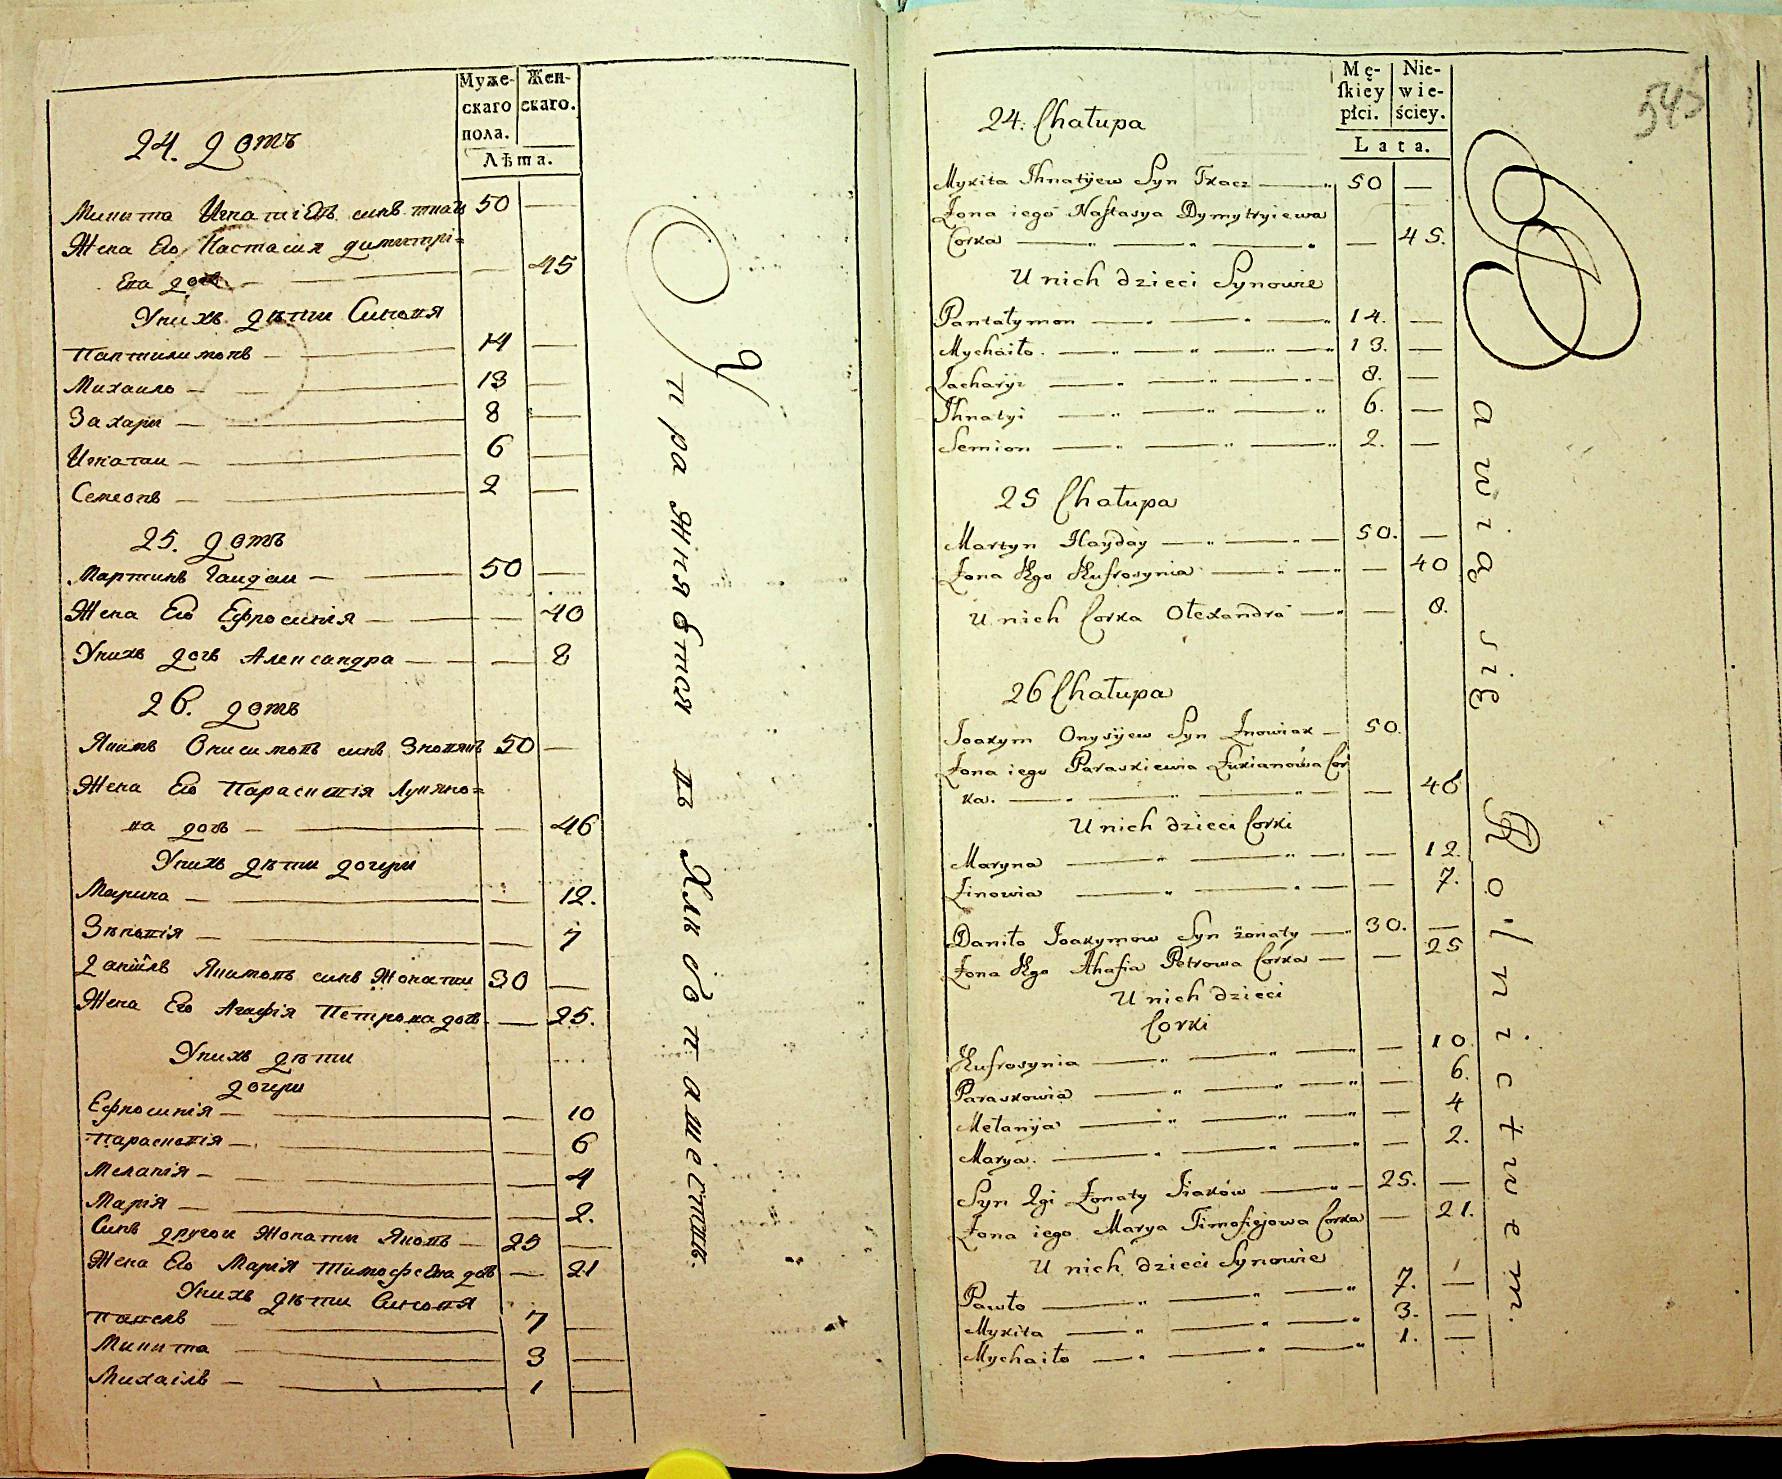 Муже-
скаго
пола.
Жен-
скаго.
Лѣта.
24. домъ
Никита Игнатіевъ синъ ткачъ 50 —
Жена Его Настасия димитрі=
ева дочь — — 45
Унихъ дѣти Синовя
Пантилимонъ — 14 —
Михаило — 13 —
Захари — 8 —
Игнатии — 6 —
Семеонъ — 2 —
25. домъ
Мартинъ Гаидаи — 50 —
Жена Его Ефросинія — — 40
Унихъ дочь Александра — — 8
26. домъ
Якимъ Онисимовъ синъ Зновякъ 50 —
Жена Его Парасковія Лукяно=
ва дочь — — 46
Унихъ дѣти дочери
Марина — — 12.
Зѣновія — — 7
Даніилъ Якимовъ синъ Жонати 30 —
Жена Его Агафія Петрова дочь — 25.
Унихъ дѣти
дочери
Ефросинія — — 10
Парасковія — — 6
Меланія — — 4
Марія — — 2.
Синъ другои Жонати Яковъ — 25 —
Жена Его Марія Тимофеева дочь — 21
Унихъ дѣти Синовя
Павелъ — 7 —
Никита — 3 —
Михаілъ — 1 —
Упражняется въ Хлѣбопашествѣ.
Mę-
skiey
płci.
Nie-
wie-
ściey.
Lata.
545
24. Chałupa
Mykita Ihnatÿew Syn Tkacz — 50 —
Żona iego Nastasya Dymytryiewa
Corka — — 45.
U nich dzieci Synowie
Pantałymon — 14. —
Mychaiło. — 13. —
Zacharyi — 8. —
Ihnatyi — 6. —
Semion — 2. —
25 Chałupa
Martyn Hayday — 50. —
Żona Ego Eufrosynia — — 40
U nich Corka Ołexandra — — 8.
26 Chałupa
Joakym Onysÿew Syn Znowiak — 50.
Żona iego Paraskiewia Łukianówa Cor
ka. — — 46
U nich dzieci Corki
Maryna — — 12.
Zinowia — — 7.
Daniło Joakymow Syn żonaty — 30. —
Żona Ego Ahafia Petrowa Corka — — 25
U nich dzieci
Corki
Eufrosynia — — 10.
Paraskowia — — 6.
Mełanÿa — — 4
Marya. — — 2.
Syn 2gi Żonaty Jiaków — 25. —
Żona iego Marya Timofiejowa Corka — 21.
U nich dzieci Synowie
Pawło — 7. —
Mykita — 3. —
Mychaiło — 1. —
Bawią się Rolnictwem.